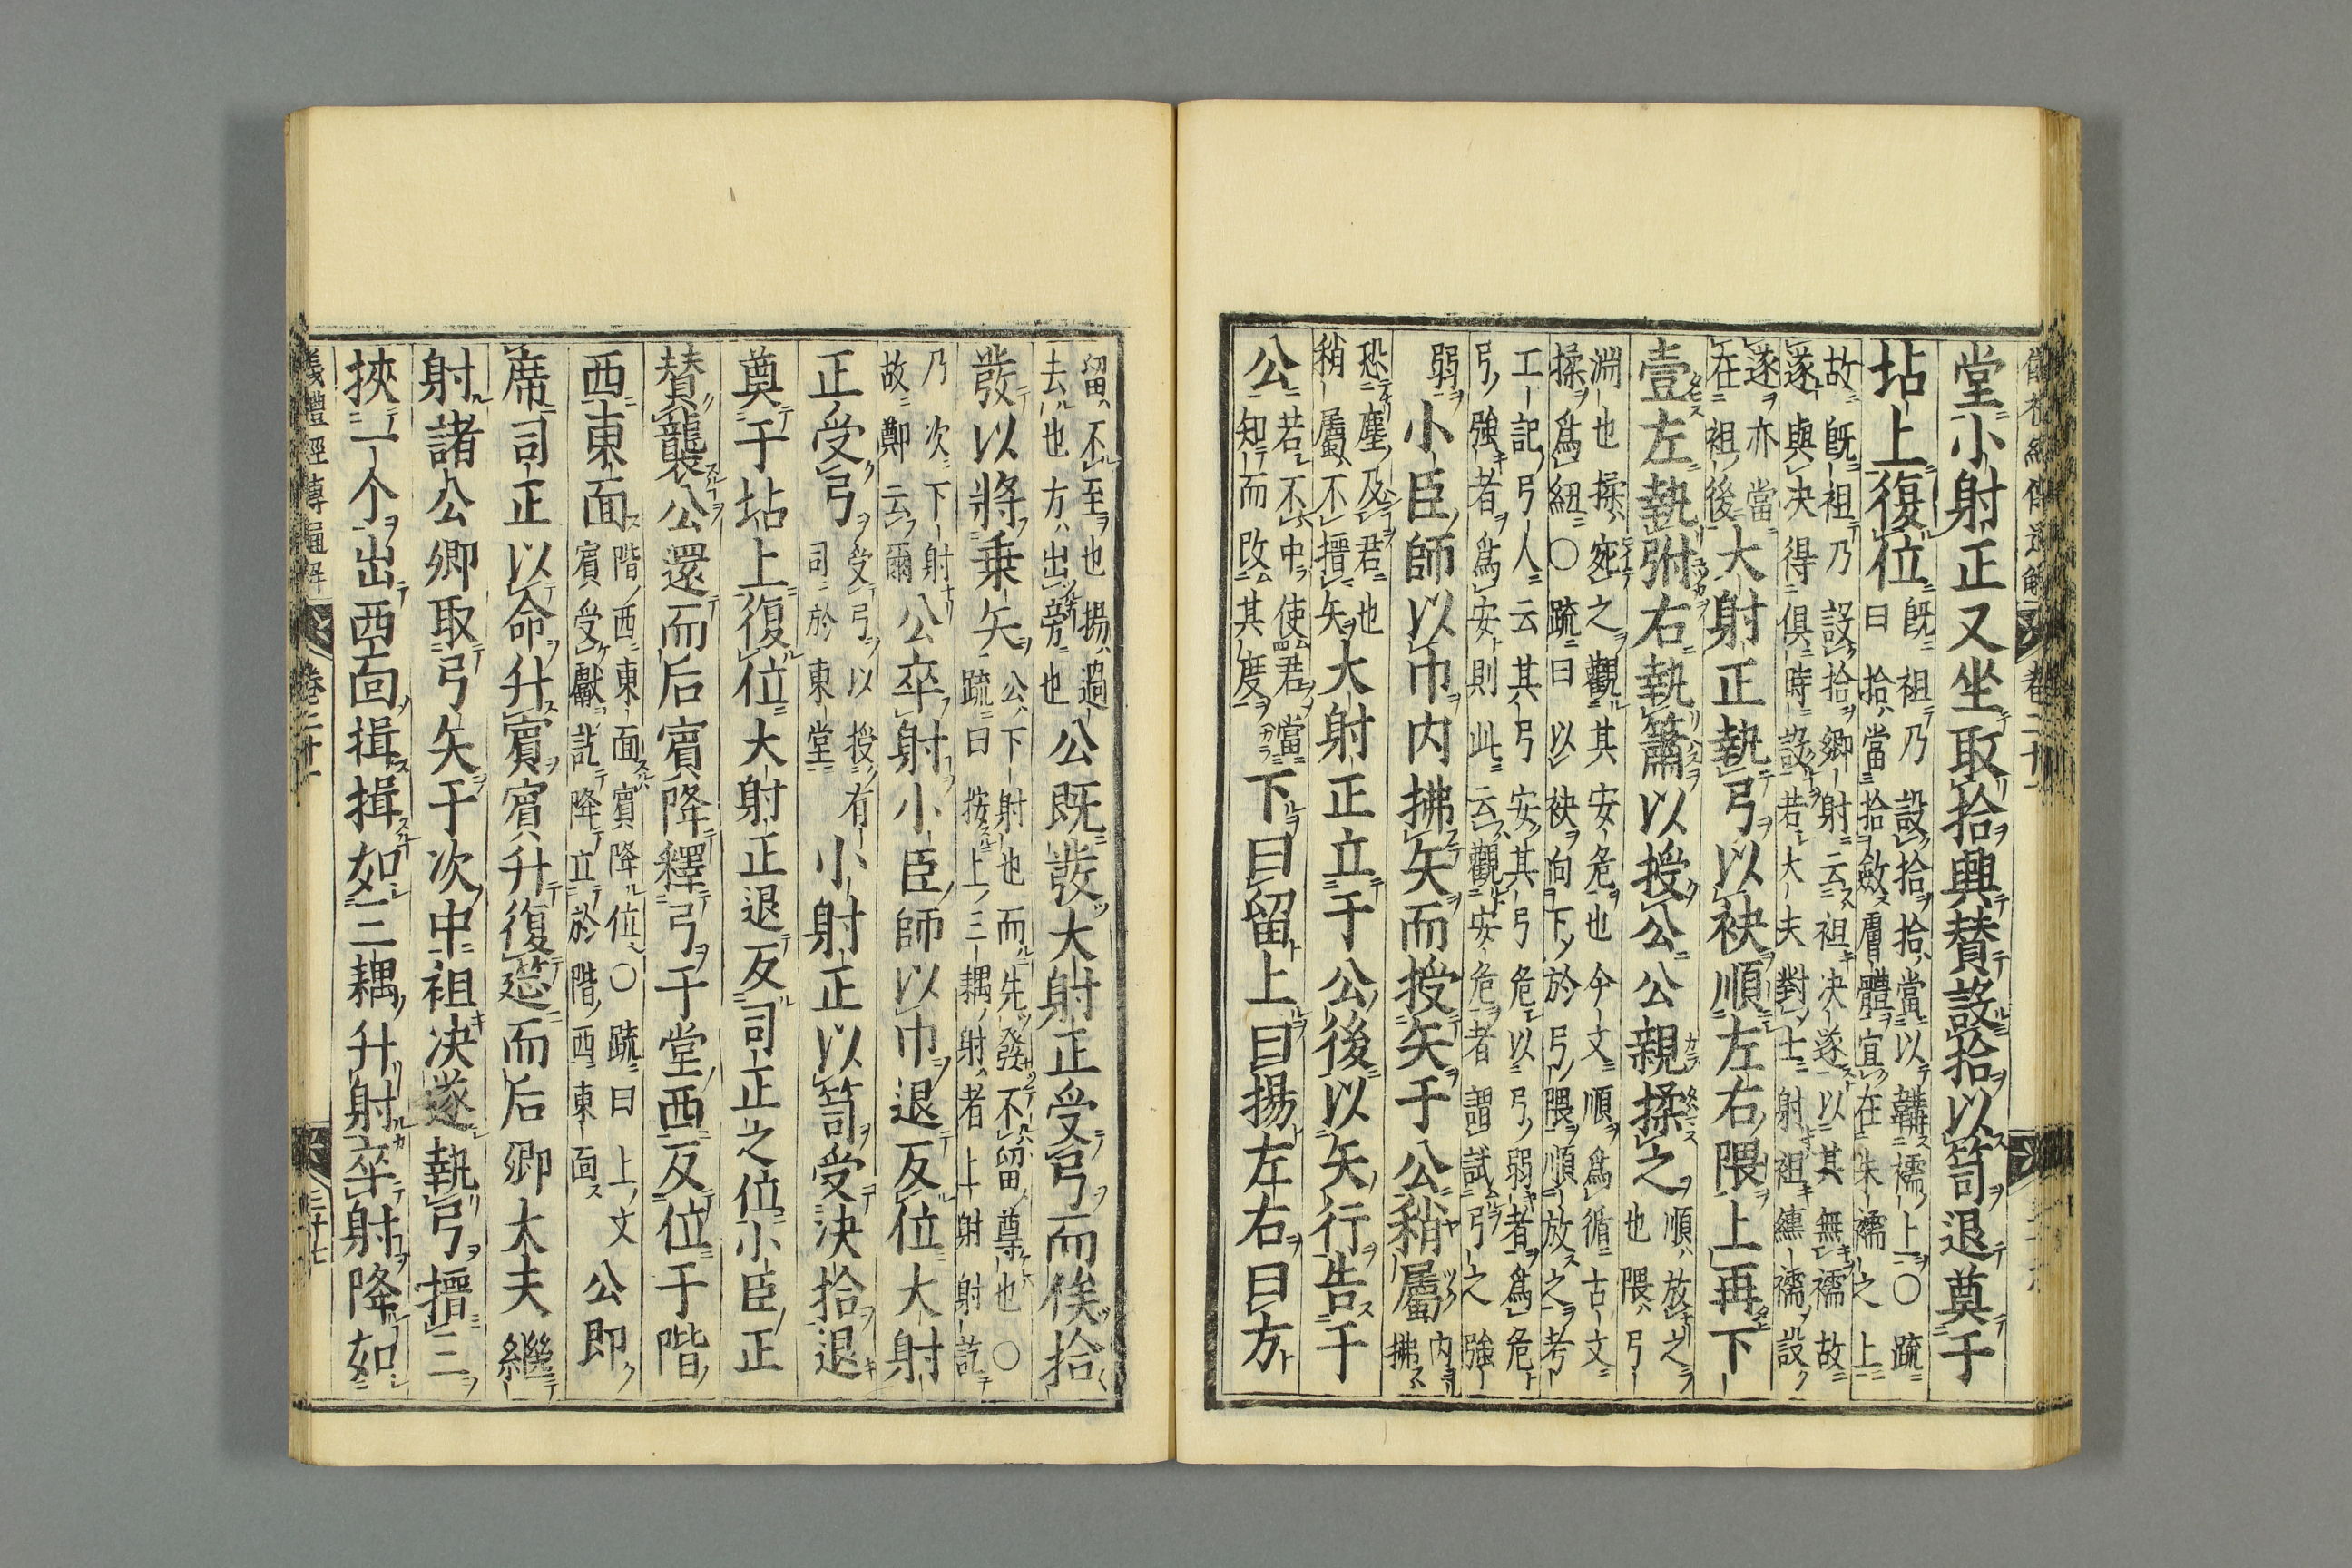 堂小射正又坐取拾興賛設拾以笥退奠于
坫上復位
既袒乃設拾拾當以韝襦上○疏
曰拾當拾斂膚體宜在朱襦之上
故既袒乃設拾鄉射云袒决遂以其無襦故
遂與决得俱時設若大夫對士射袒纁襦設
遂亦當
在袒後
大射正執弓以袂順左右隈上再下
壹左執弣右執簫以授公公親揉之
順放之
也隈弓
淵也揉宛之觀其安危也今文順爲循古文
揉爲紐○疏曰以袂向下於弓隈順放之考
工記弓人云其弓安其弓危以弓弱者爲危
弓強者爲安則此云觀安危者謂試弓之強
弱
小臣師以巾内拂矢而授矢于公稍屬
内
拂
恐塵及君也
稍屬不搢矢
大射正立于公後以矢行告于
公
若不中使君當
知而改其度
下曰留上曰揚左右曰方
留不至也揚過
去也方出旁也
公既發大射正受弓而俟拾
發以將乗矢
公下射也而先發不留尊也○
疏曰按上三耦射者上射射訖
乃次下射
故鄭云爾
公卒射小臣師以巾退反位大射
正受弓
受弓以授有
司於東堂
小射正以笥受决拾退
奠于坫上復位大射正退反司正之位小臣正
賛襲公還而后賓降釋弓于堂西反位于階
西東面
階西東面賓降位○疏曰上文
賓受獻訖降立於階西東面
公即
席司正以命升賓賓升復筵而后卿大夫繼
射諸公卿取弓矢于次中袒决遂執弓搢三
挾一个出西面揖揖如三耦升射卒射降如
儀禮經傳通解 卷二十一 三十七